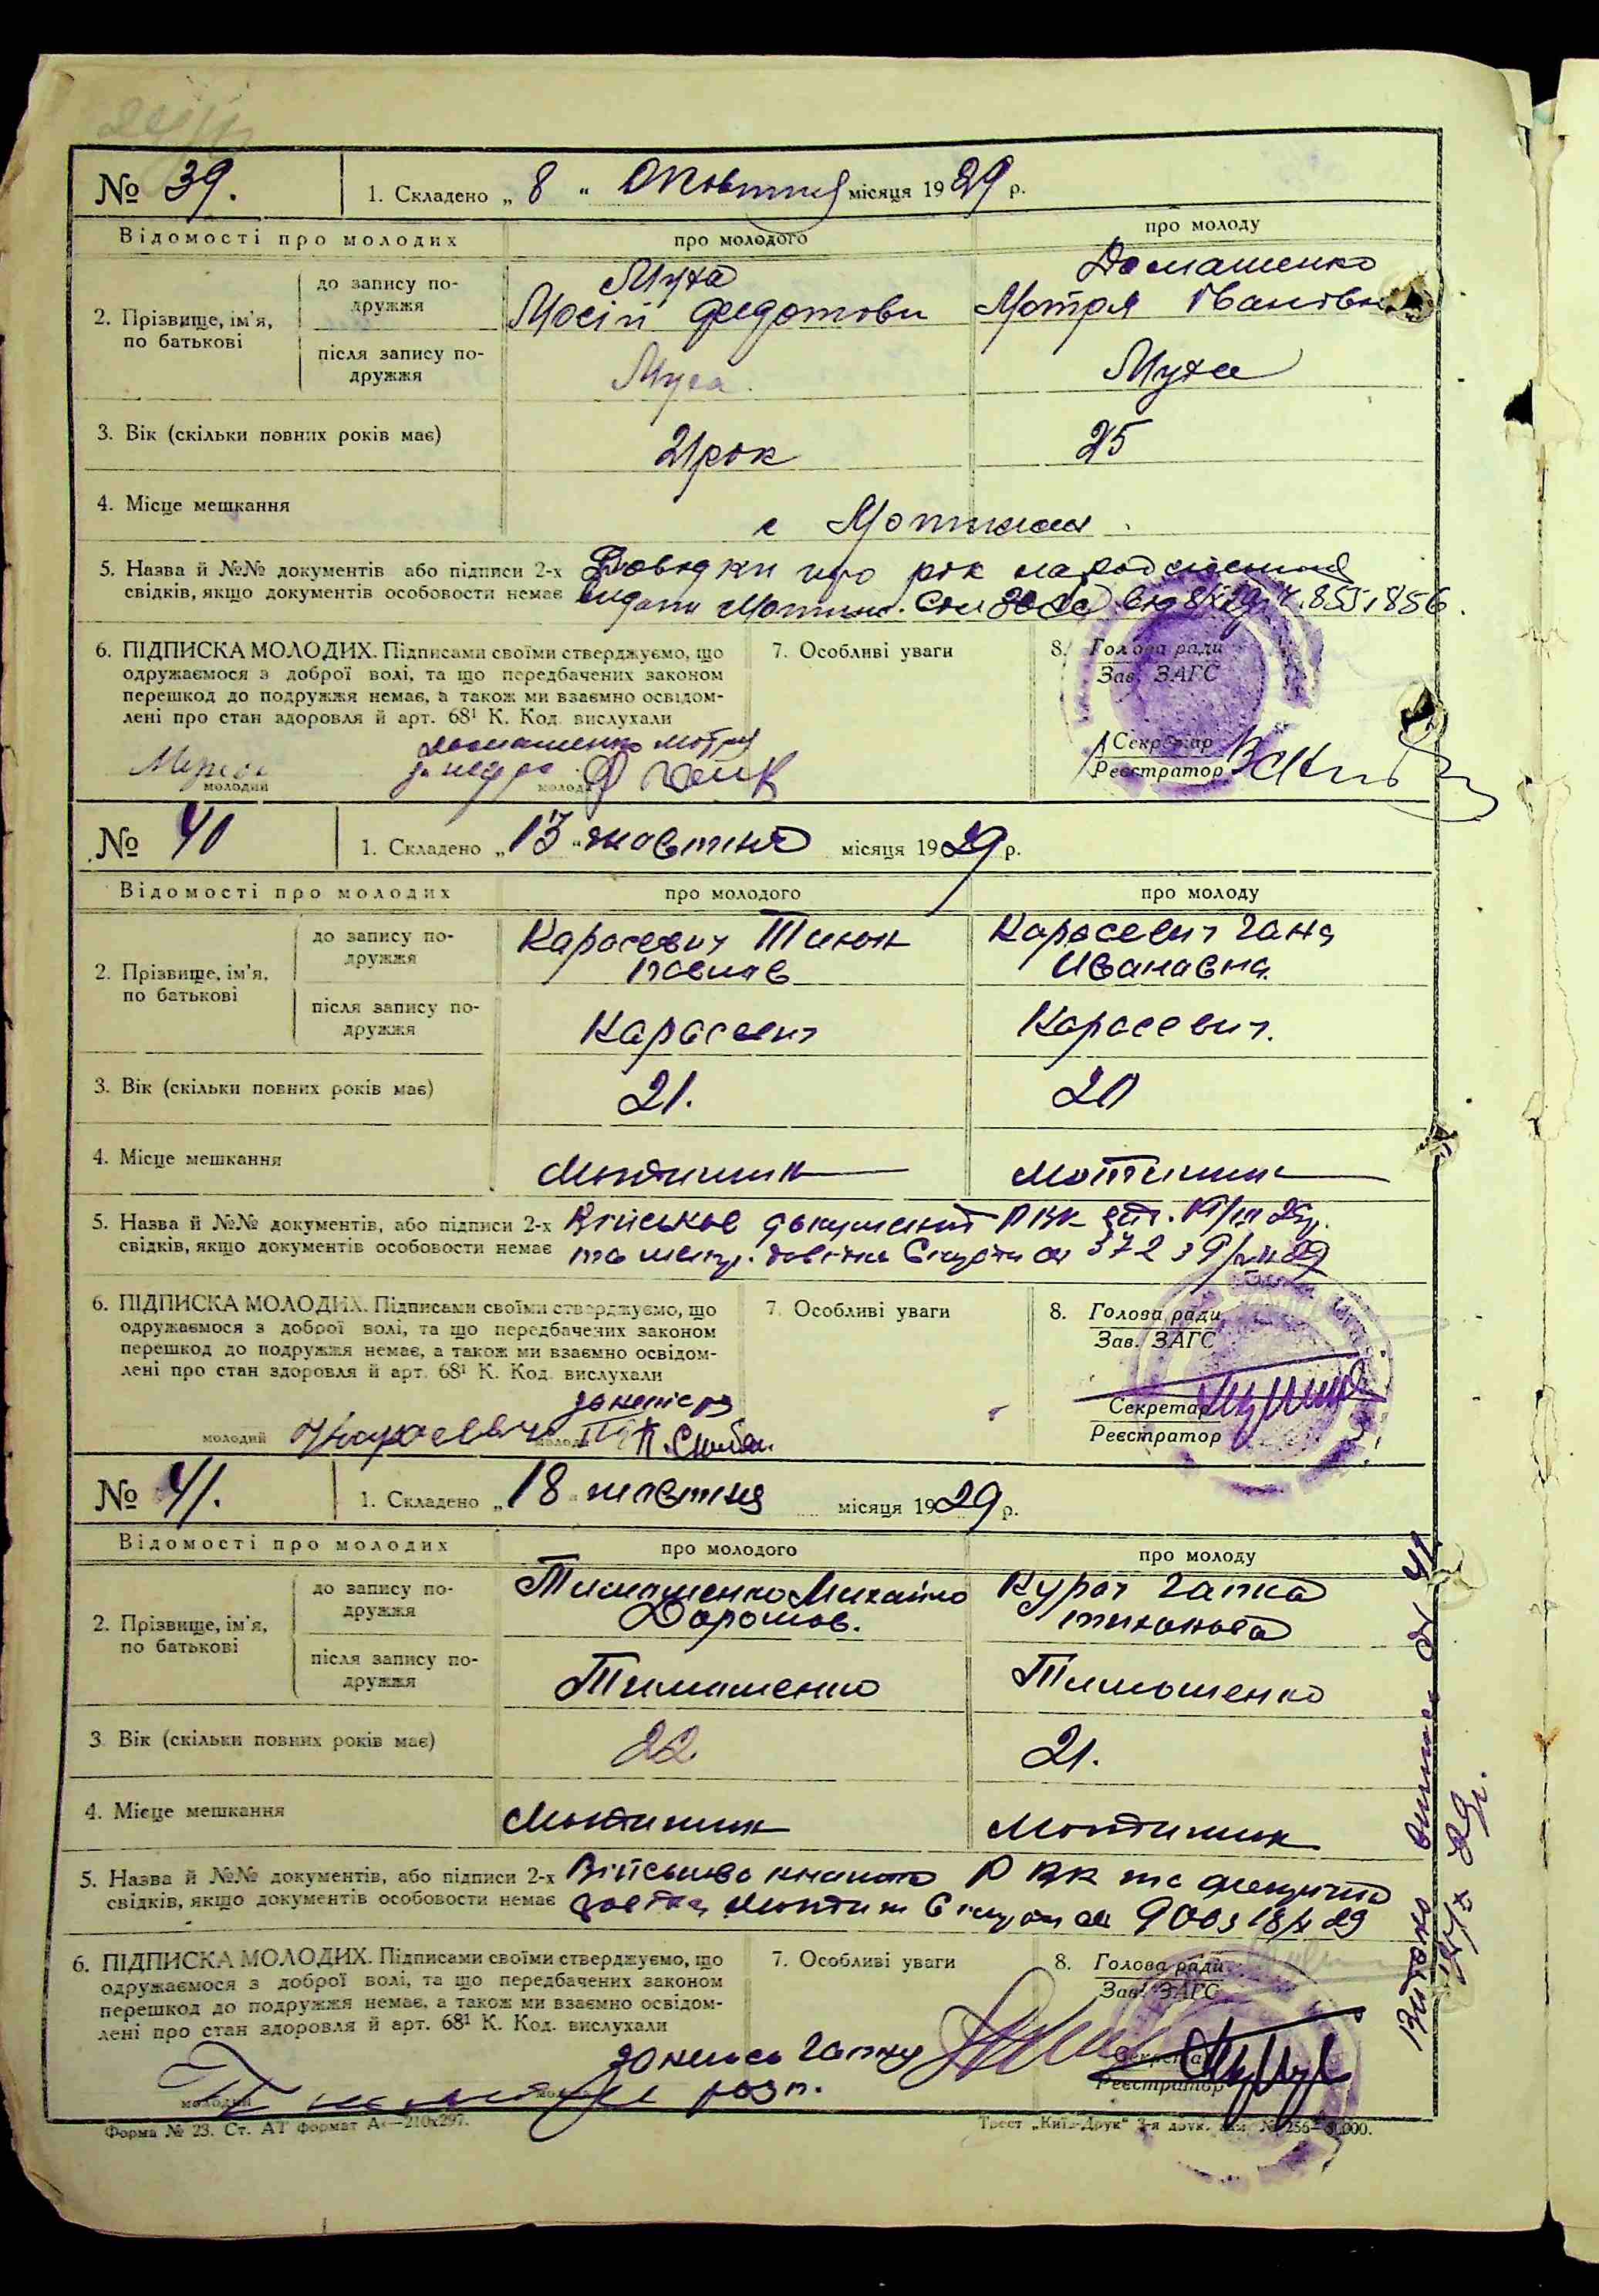 № 39. 1. Складено „ 8 “ Жовтня місяця 1929 р.
Відомості про молодих про молодого про молоду
2. Прізвище, ім'я, по батькові
до запису подружжя
Муха Домашенко
Мосій Федотови Мотря Івановна
після запису подружжя Муха Муха
3. Вік (скільки повних років має) 21 рок 25
4. Місце мешкання с Мотижин
5. Назва й №№ документів або підписи 2-х Довідки про рок народження
свідків, якщо документів особовости немає видати Мотиж. 8/X 29 ч. 855, 856.
6. ПІДПИСКА МОЛОДИХ. Підписами своїми стверджуємо, що 7. Особливі уваги 8. Голова ради
одружаємося з доброї волі, та що передбачених законом Зав. ЗАГС
перешкод до подружжя немає, а також ми взаємно освідом-
лені про стан здоровля й арт. 68¹ К. Код. вислухали
Домашенко Мотря Секретар
молодий молода Реєстратор
№ 40 1. Складено „ 13 “ жовтня місяця 1929 р.
Відомості про молодих про молодого про молоду
2. Прізвище, ім'я, по батькові
до запису подружжя
Карасевич Карасевич Гана
Павлов Ивановна
після запису подружжя Карасевич Карасевич.
3. Вік (скільки повних років має) 21. 20
4. Місце мешкання Мотижин Мотижин
5. Назва й №№ документів, або підписи 2-х Військов документ РВК
свідків, якщо документів особовости немає та довідка Сільради 372
6. ПІДПИСКА МОЛОДИХ. Підписами своїми стверджуємо, що 7. Особливі уваги 8. Голова ради
одружаємося з доброї волі, та що передбачених законом Зав. ЗАГС
перешкод до подружжя немає, а також ми взаємно освідом-
лені про стан здоровля й арт. 68¹ К. Код. вислухали
Секретар
молодий Карасевич молода Реєстратор
№ 41. 1. Складено „ 18 “ жовтня місяця 1929 р.
Відомості про молодих про молодого про молоду
2. Прізвище, ім'я, по батькові
до запису подружжя
Тимошенко Михайло Гапка
Дорошов. Тихонова
після запису подружжя Тимошенко Тимошенко
3. Вік (скільки повних років має) 22 21.
4. Місце мешкання Мотижин Мотижин
5. Назва й №№ документів, або підписи 2-х Військова книжка РВК та
свідків, якщо документів особовости немає довідка Мотиж Сільради 900 з 18/X 29
6. ПІДПИСКА МОЛОДИХ. Підписами своїми стверджуємо, що 7. Особливі уваги 8. Голова ради
одружаємося з доброї волі, та що передбачених законом Зав. ЗАГС
перешкод до подружжя немає, а також ми взаємно освідом-
лені про стан здоровля й арт. 68¹ К. Код. вислухали
Гапку Секретар
молодий розп. Реєстратор
Форма № 23. Ст. АТ формат А4—210x297. Трест „Київ-Друк“ 3-я друк.
Видано № 41